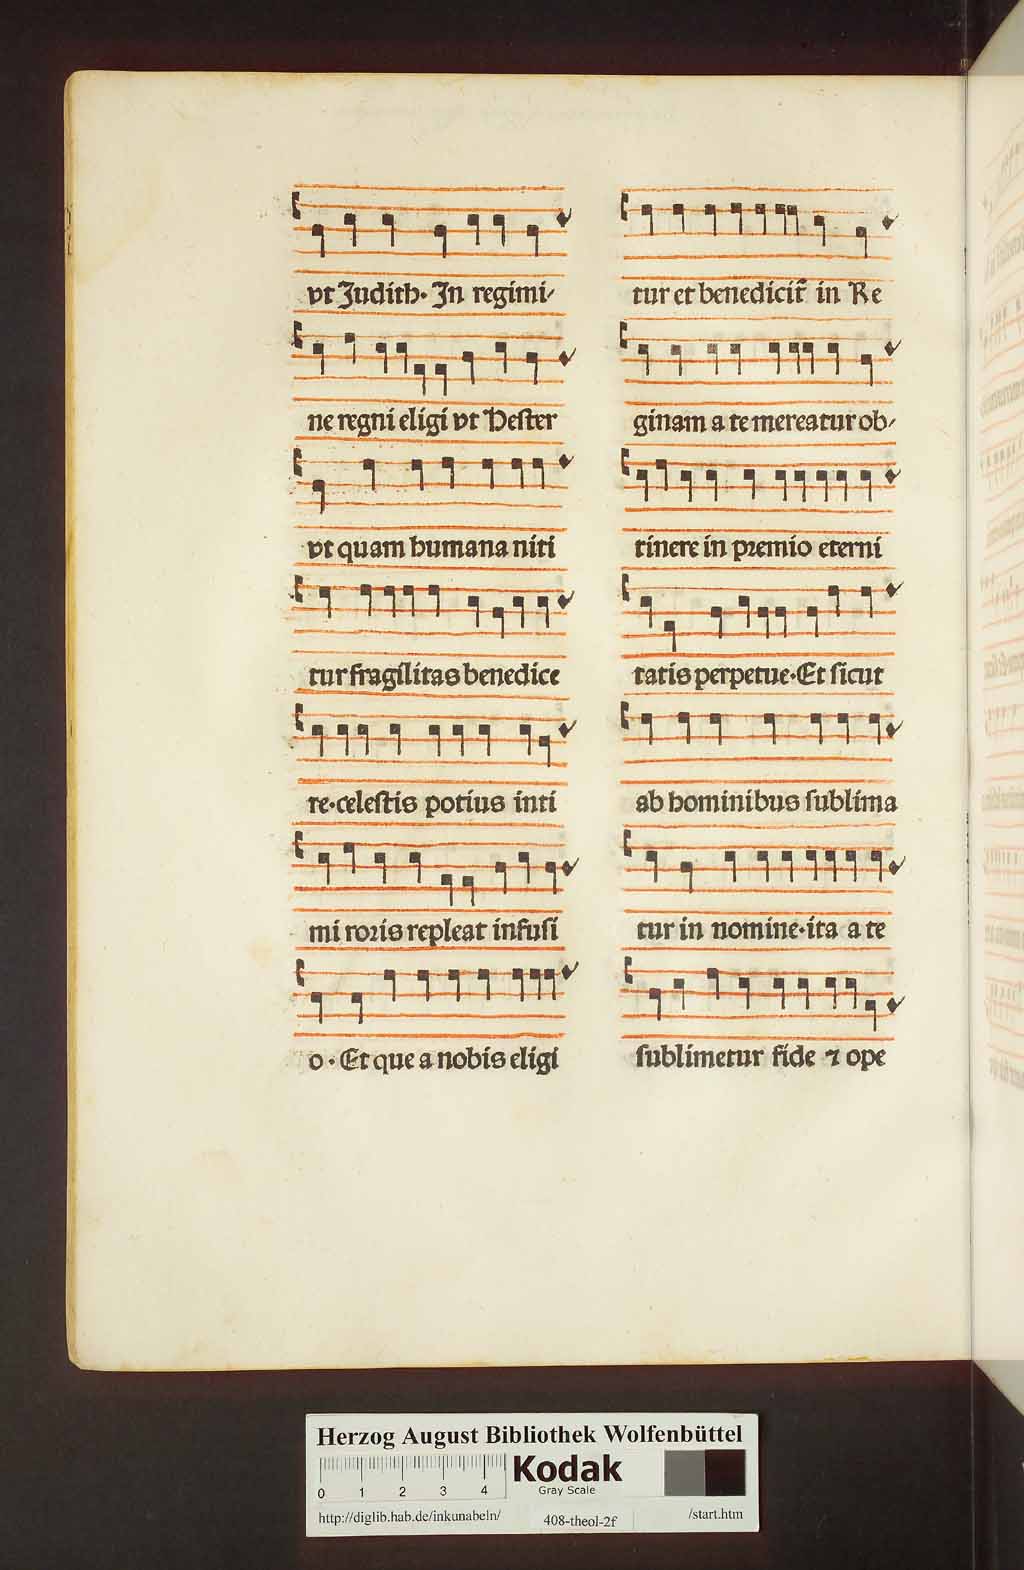 vt Judith· In regimi⸗
ne regni eligi vt Hester
vt quam humana niti
tur fragilitas benedice
re·celestis potius inti
mi roris repleat infusi
o · Et que a nobis eligi
tur et benedicit̃ in Re
ginam a te mereatur ob⸗
tinere in premio eterni
tatis perpetue·Et sicut
ab hominibus sublima
tur in nomine·ita a te
sublimetur fide ⁊ ope
Herzog August Bibliothek Wolfenbüttel
Kodak
Gray Scale
0 1 2 3 4
http://diglib.hab.de/inkunabeln/ 408-theol-2f /start.htm